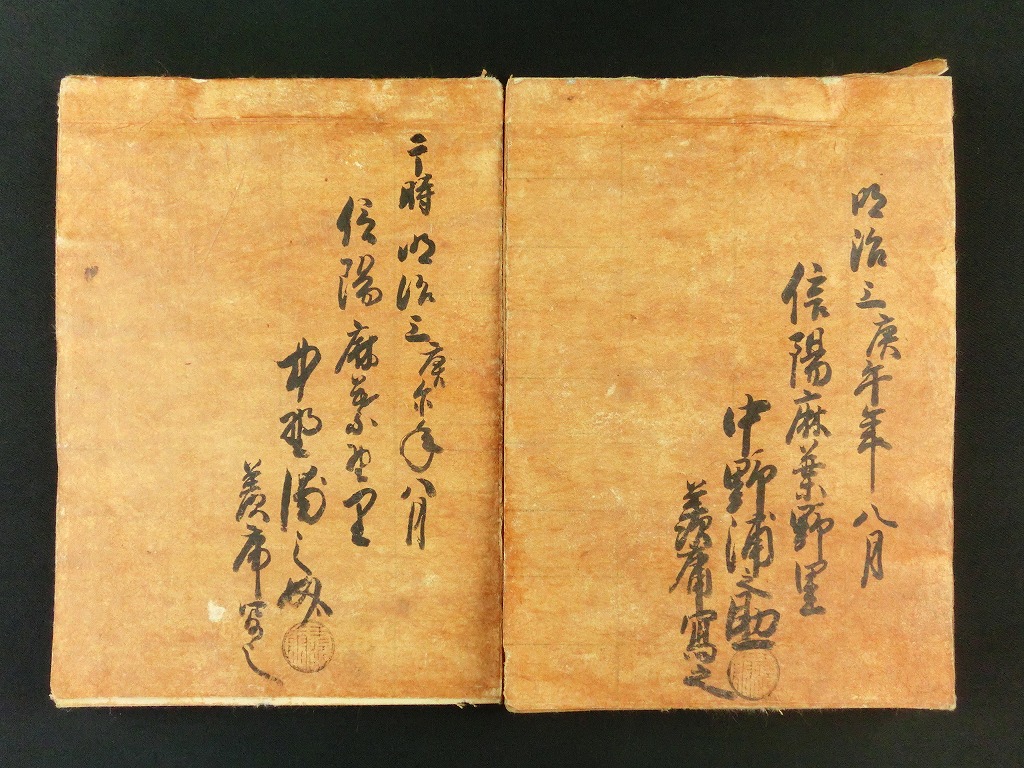 明治三庚午年八月
信陽麻葉野里
中野浦之助
義庸寫之
于時明治三庚午年八月
信陽麻葉野里
中野浦之助
義庸写之